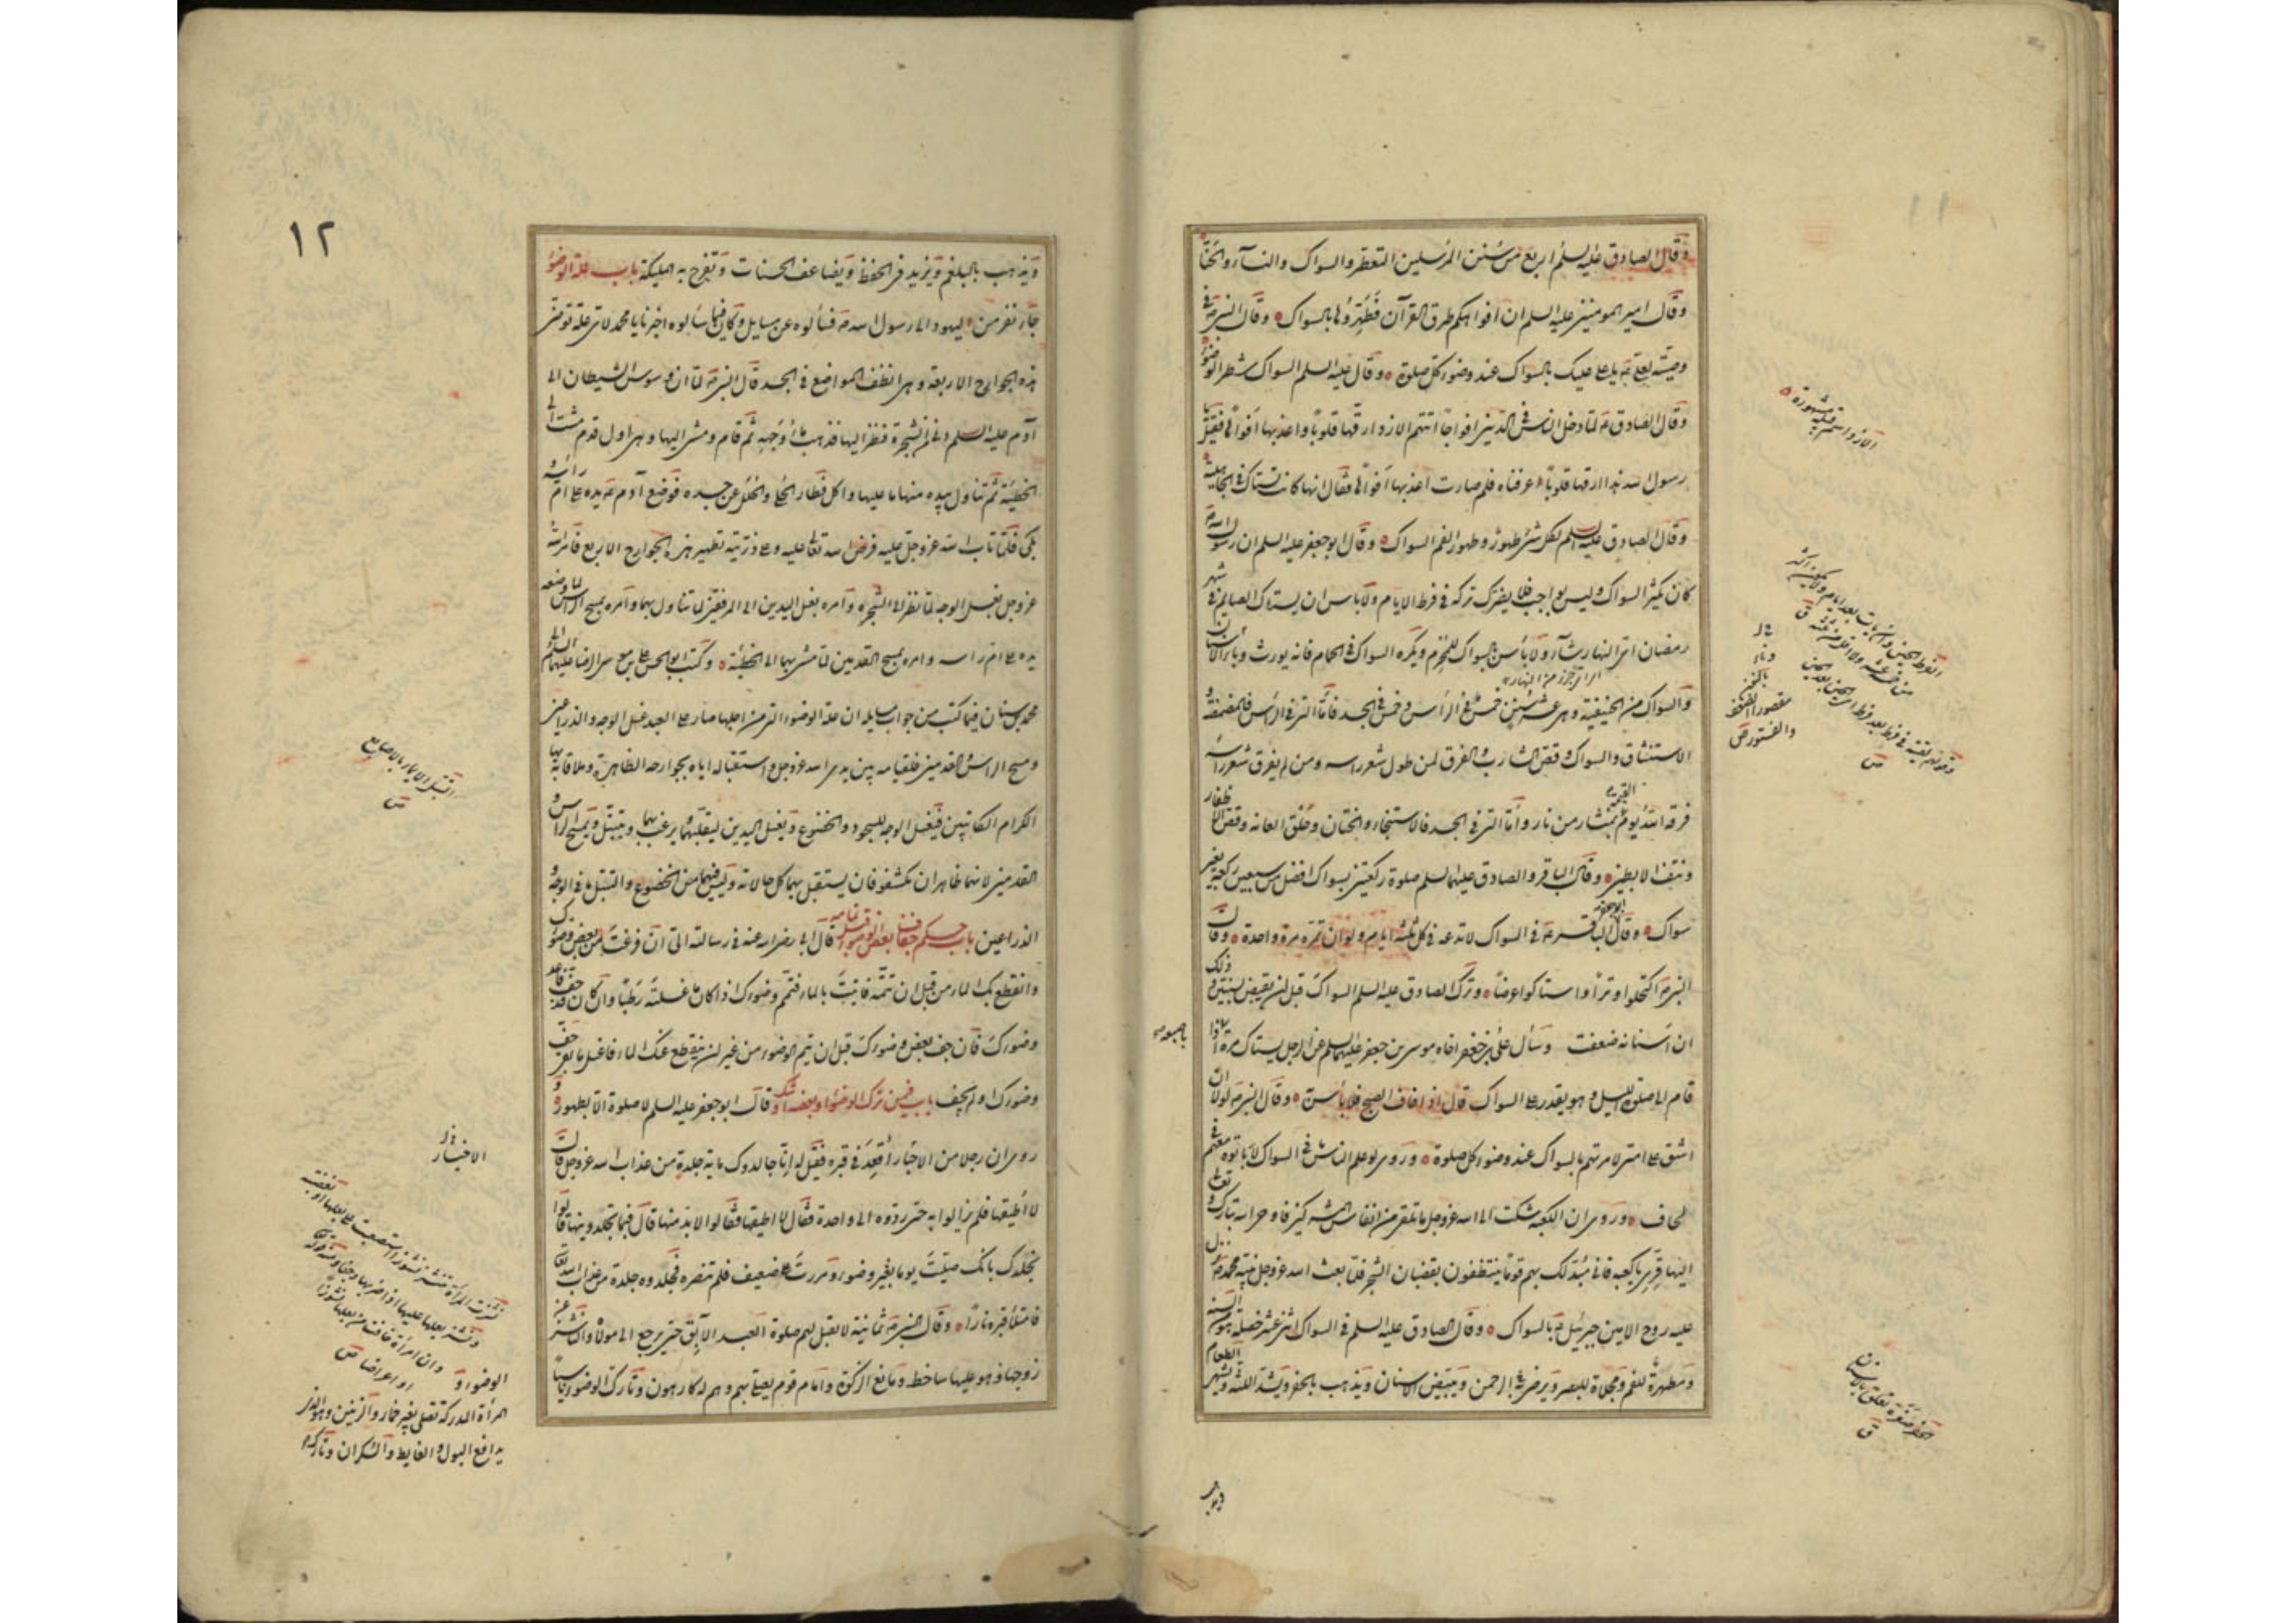 وقال الصادق عليه السلم اربع من سنن المرسلين التعطر والسواك والنساء والحنا
وقال امير المومنين عليه السلم ان افواهكم طرق القرآن فطهروها بالسواك وقال النبي ص في
وصيته لعلي ع يا علي عليك بالسواك عند وضوء كل صلوة وقال عليه السلم السواك شطر الوضوء
وقال الصادق ع لما دخل الناس في الدين افواجا اتتهم الازد ارقها قلوبا واعذبها افواها فقيل يا
رسول الله هذا ارقها قلوبا عرفناه فلم صارت اعذبها افواها فقال انها كانت تستاك في الجاهلية
وقال الصادق عليه السلم لكل شئ طهور وطهور الفم السواك وقال ابو جعفر عليه السلم ان رسول الله ص
كان يكثر السواك وليس بواجب فلا يضرك تركه في فرط الايام ولا باس ان يستاك الصايم في شهر
رمضان اي النهار شاء ولا باس بالسواك للمحرم ويكره السواك في الحمام فانه يورث وباء الاسنان
والسواك من الحنيفية وهي عشر سنن خمس في الراس وخمس في الجسد فاما التي في الراس فالمضمضة و
الاستنشاق والسواك وقص الشارب والفرق لمن طول شعر راسه ومن لم يفرق شعر راسه
فرقه الله يوم القيمة بمنشار من نار واما التي في الجسد فالاستنجاء والختان وحلق العانه وقص الاظفار
ونتف الابطين وقال الباقر والصادق عليهما السلم صلوة ركعتين بسواك افضل من سبعين ركعة بغير
سواك وقال الباقر ع في السواك لا تدعه في كل ثلثة ايام ولو ان تمره مرة واحدة وقال
النبي ص اكتحلوا وترا واستاكوا عرضا وترك الصادق عليه السلم السواك قبل ان يقبض بسنتين وذلك
ان اسنانه ضعفت وسال علي بن جعفر اخاه موسى بن جعفر عليهما السلم عن الرجل يستاك مرة بيده اذا
قام الى صلوة الليل وهو يقدر على السواك قال اذا خاف الصبح فلا باس به وقال النبي ص لولا ان
اشق على امتي لامرتهم بالسواك عند وضوء كل صلوة وروي لو علم الناس ما في السواك لاباتوه معهم في
لحاف وروي ان الكعبه شكت الى الله عز وجل ما تلقى من انفاس المشركين فاوحى الله تبارك وتعالى
اليها قري يا كعبه فاني مبدلك بهم قوما يتنظفون بقضبان الشجر فلما بعث الله عز وجل نبيه محمد ص نزل
عليه روح الامين جبرئيل ع بالسواك وقال الصادق عليه السلم في السواك اثني عشر خصلة هو من السنة
ومطهرة للفم ومجلاة للبصر ويرضي الرحمن ويبيض الاسنان ويذهب بالحفر ويشد اللثة ويشهي الطعام
ويذهب
١٢
ويذهب بالبلغم ويزيد في الحفظ ويضاعف الحسنات وتفرح به المليكة باب علة الوضوء
جاء نفر من اليهود الى رسول الله ص فسالوه عن مسايل وكان فيما سالوه اخبرنا يا محمد لاي علة توضئ
هذه الجوارح الاربعة وهي انظف المواضع في الجسد قال النبي ص لما ان وسوس الشيطان الى
آدم عليه السلم ودنى من الشجرة فنظر اليها فذهب ماء وجهه ثم قام ومشى اليها وهي اول قدم مشت الى
الخطيئة ثم تناول بيده منها ما عليها واكل فطار الحلي والحلل عن جسده فوضع آدم ع يده على ام راسه و
بكى فلما تاب الله عز وجل عليه فرض الله تعالى عليه وعلى ذريته تطهير هذه الجوارح الاربع فامر الله
عز وجل بغسل الوجه لما نظر الى الشجرة وامره بغسل اليدين الى المرفقين لما تناول بهما وامره بمسح الراس لما وضع
يده على ام راسه وامره بمسح القدمين لما مشى بهما الى الخطيئة وكتب ابو الحسن علي بن موسى الرضا عليهما السلم الى
محمد بن سنان فيما كتب من جواب مسايله ان علة الوضوء التي من اجلها صار على العبد غسل الوجه والذراعين
ومسح الراس والقدمين فلقيامه بين يدي الله عز وجل واستقباله اياه بجوارحه الظاهرة وملاقاته بها
الكرام الكاتبين فيغسل الوجه للسجود والخضوع ويغسل اليدين ليقلبهما ويرغب بهما ويتبتل ويمسح الراس و
القدمين لانهما ظاهران مكشوفان يستقبل بهما كل حالاته وليس فيهما من الخضوع والتبتل ما في الوجه و
الذراعين باب حكم جفاف بعض الوضوء قبل تمامه قال ابي رضي الله عنه في رسالته الي ان فرغت من بعض وضوئك
وانقطع بك الماء من قبل ان تتمه فاتيت بالماء فتمم وضوءك اذا كان ما غسلته رطبا وان كان قد جف فاعد
وضوءك فان جف بعض وضوءك قبل ان تتم الوضوء من غير ان ينقطع عنك الماء فاغسل ما بقي جف
وضوءك او لم يجف باب فيمن ترك الوضوء او بعضه او شك قال ابو جعفر عليه السلم لا صلوة الا بطهور و
روي ان رجلا من الاحبار اقعد في قبره فقيل له انا جالدوك ماية جلدة من عذاب الله عز وجل قال
لا اطيقها فلم يزالوا به حتى ردوه الى واحدة فقال لا اطيقها فقالوا لا بد منها قال فيما تجلدونيها قالوا
نجلدك بانك صليت يوما بغير وضوء ومررت على ضعيف فلم تنصره فجلدوه جلدة من عذاب الله تعالى
فامتلا قبره نارا وقال النبي ص ثمانية لا يقبل لهم صلوة العبد الآبق حتى يرجع الى مولاه والناشز عن
زوجها وهو عليها ساخط ومانع الزكوة وامام قوم يصلي بهم وهم له كارهون وتارك الوضوء
الاخبار
المرأة المدركة تصلي بغير خمار والزنين وهو الذي
يدافع البول والغايط والسكران